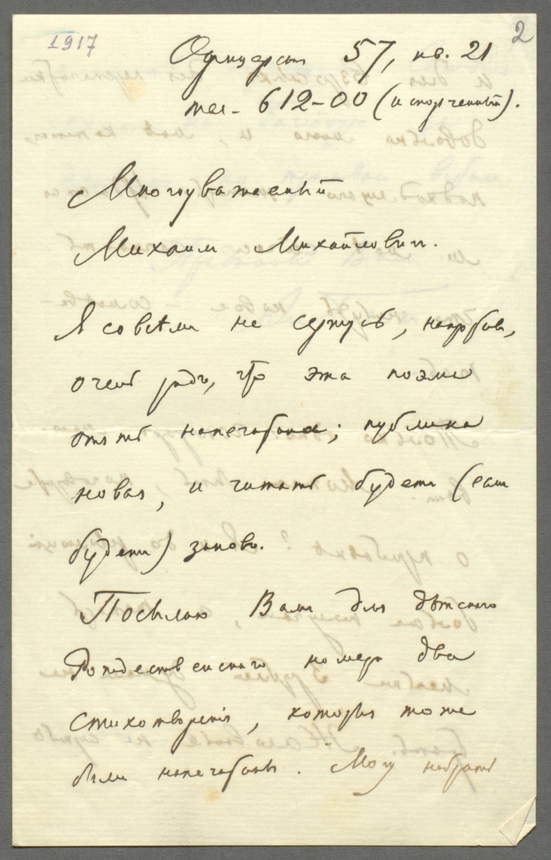 1917
2
Офицерская 57, кв. 21
тел. 612-00 (испорченный).
Многоуважаемый
Михаил Михайлович.
Я совсѣмъ не сержусь, напротив,
очень радъ, что эта поэма
опять напечатана; публика
новая, и читать будетъ (если
будетъ) заново.
Посылаю Вамъ для дѣтскаго
Рождественскаго номера два
стихотворенія, которыя тоже
были напечатаны. Могу набрать